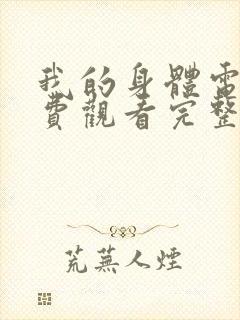 我的身體電
費觀看完整
荒蕪人煙